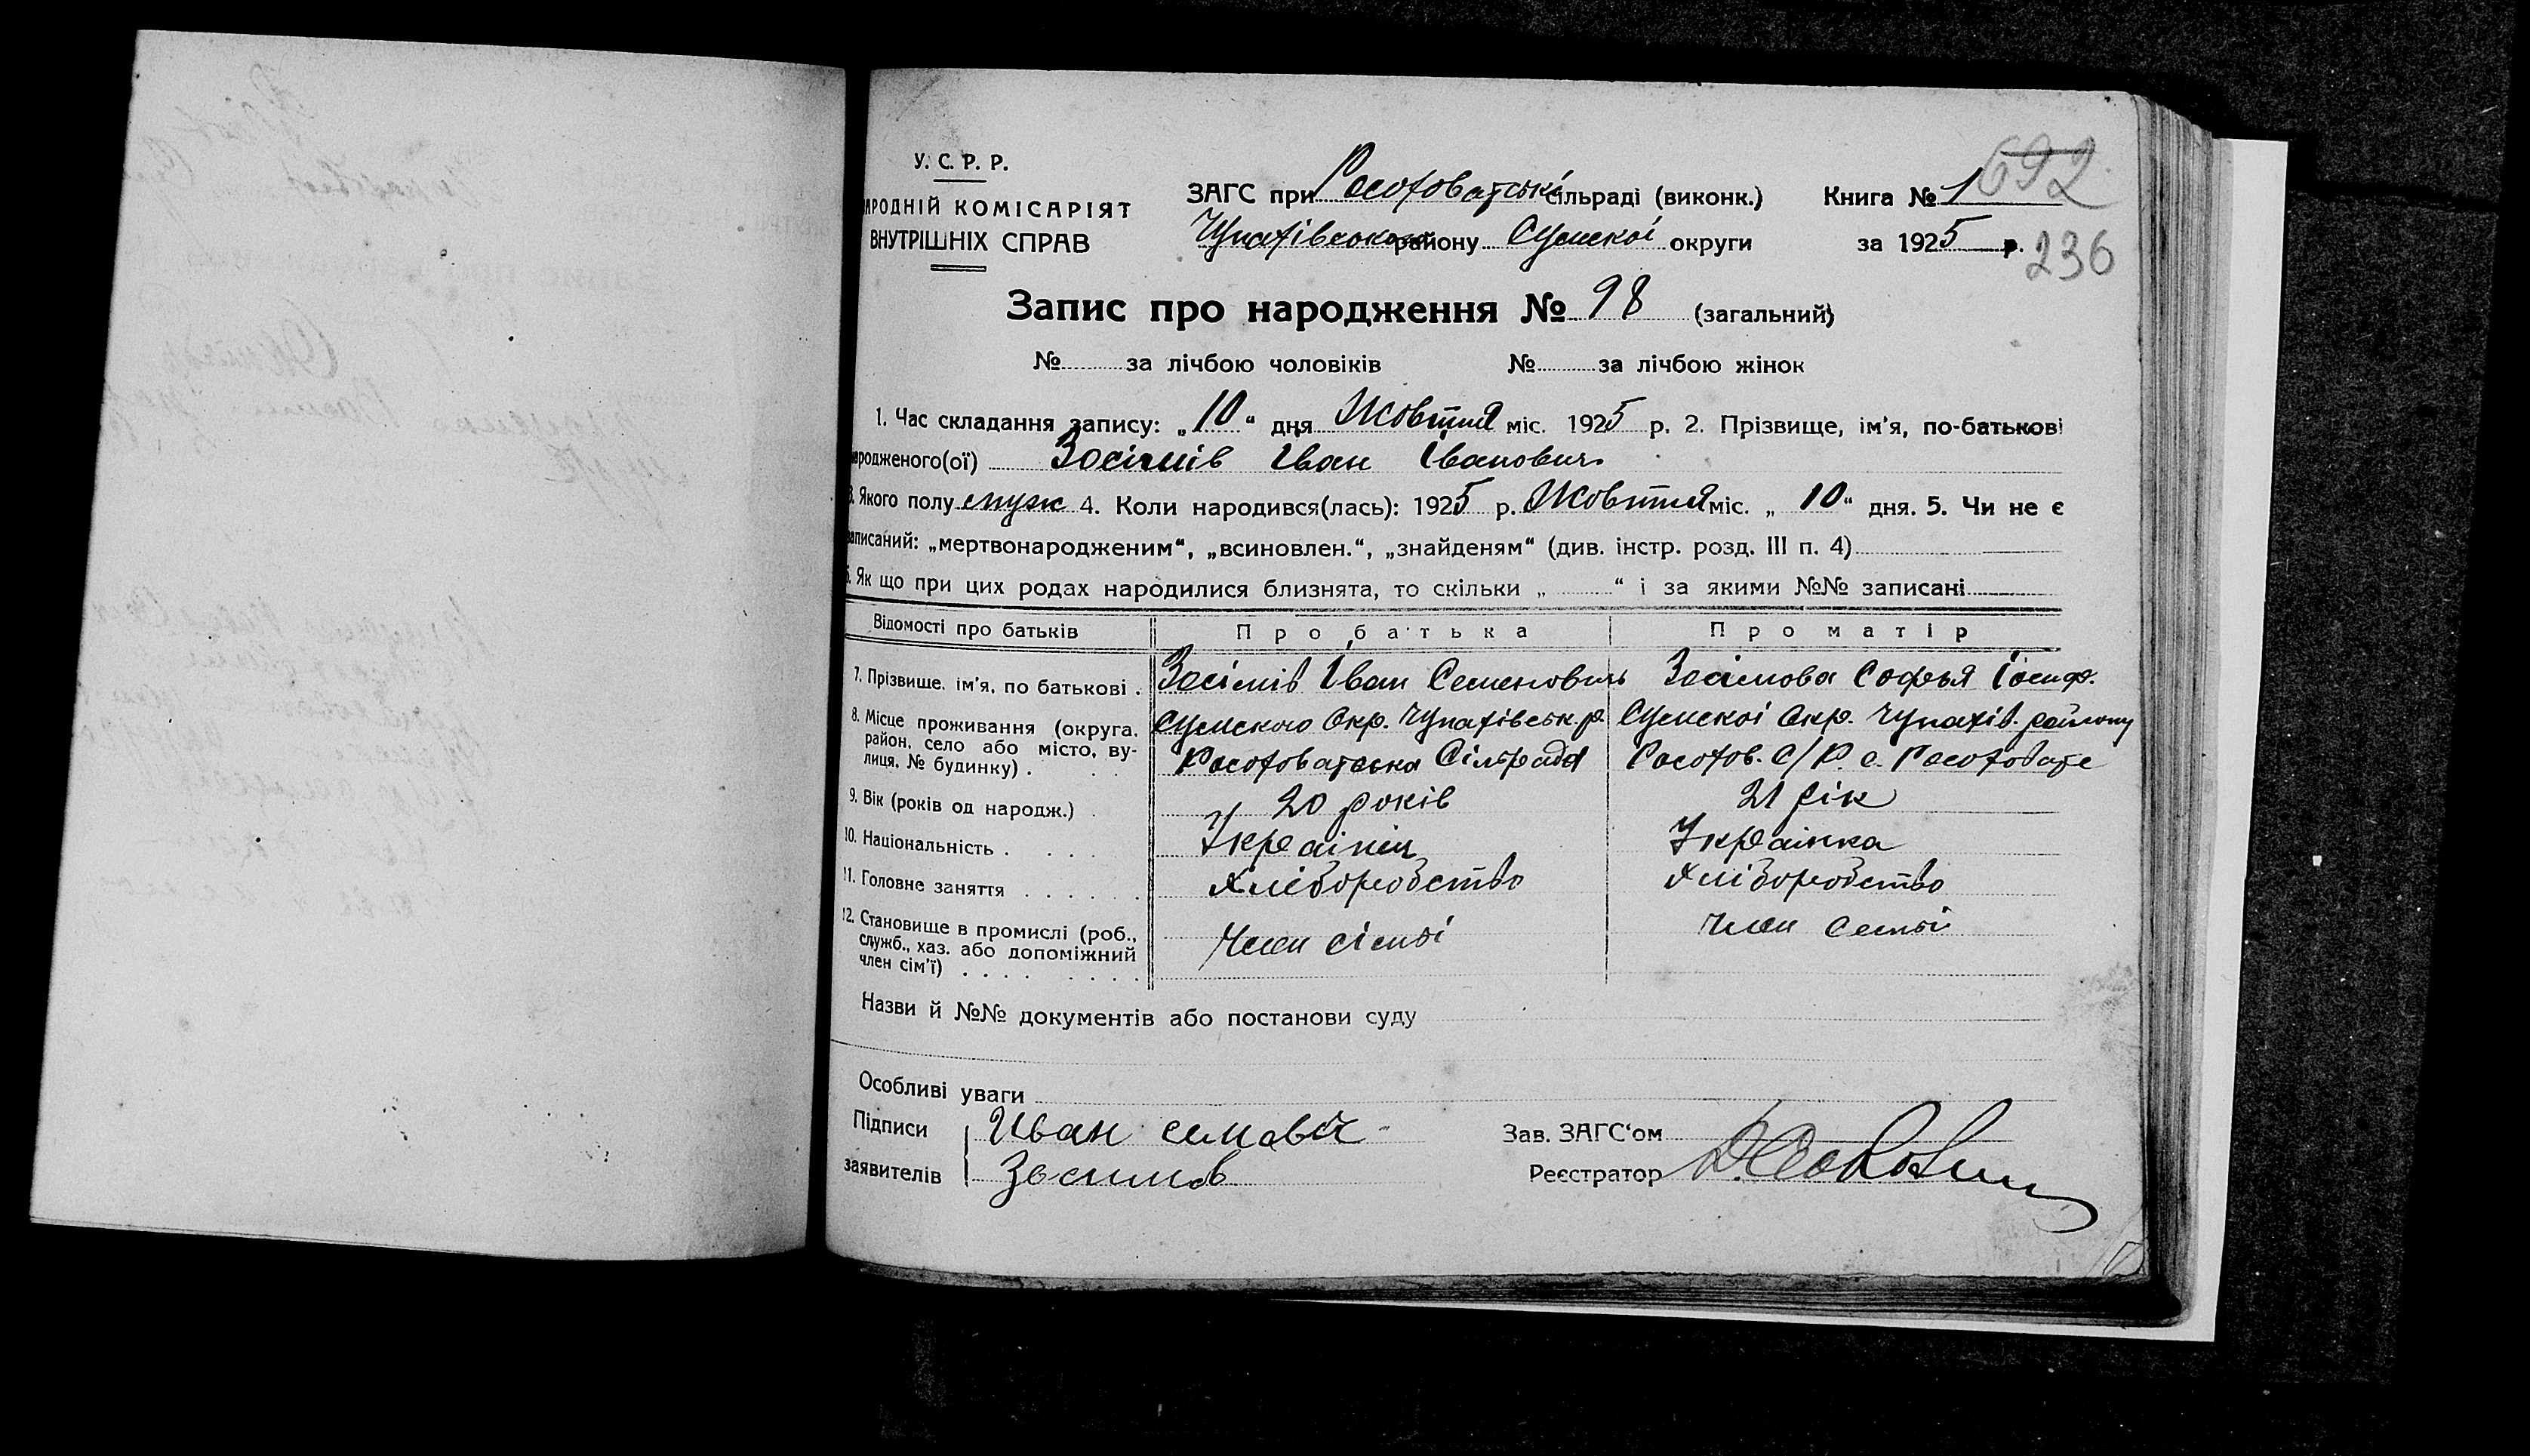 692
У. С. Р. Р.
РОДНІЙ КОМІСАРІЯТ
ВНУТРІШНІХ СПРАВ
ЗАГС при Росоховатській сільраді (виконк.) Книга № 1
Чупахівського району Сумскої округи за 1925 р.
236
Запис про народження № 98 (загальний)
№ за лічбою чоловіків № за лічбою жінок
1. Час складання запису: „10“ дня Жовтня міс. 1925 р. 2. Прізвище, ім'я, по-батькові
ародженого(ої) Зосімів Іван Іванович
3. Якого полу муж 4. Коли народився(лась): 1925 р. Жовтня міс. „10“ дня. 5. Чи не є
записаний: „мертвонародженим“, „всиновлен.“, „знайденям“ (див. інстр. розд. III п. 4)
6. Як що при цих родах народилися близнята, то скільки „ “ і за якими №№ записані
Відомості про батьків Про батька Про матір
7. Прізвище, ім'я, по батькові . Зосімів Іван Семенович Зосімова Софья Іосиф.
8. Місце проживання (округа, район, село або місто, ву-
лиця, № будинку) . . .
Сумского Окр. Чупахівськ. р. Сумскої Окр. Чупахів. району
Росоховатська Сільрада Росохов. С/Р. с. Росоховате
9. Вік (років од народж.) . 20 років 21 рік
10. Національність . . . . Українец Українка
11. Головне заняття . . . . . . Хліборобство Хліборобство
12. Становище в промислі (роб.,
служб., хаз. або допоміжний
член сім'ї) . . . . . . . .
Член сімьі Член семьи
Назви й №№ документів або постанови суду
Особливі уваги
Підписи Иван Зав. ЗАГС‘ом
заявителів Зосимов Реєстратор